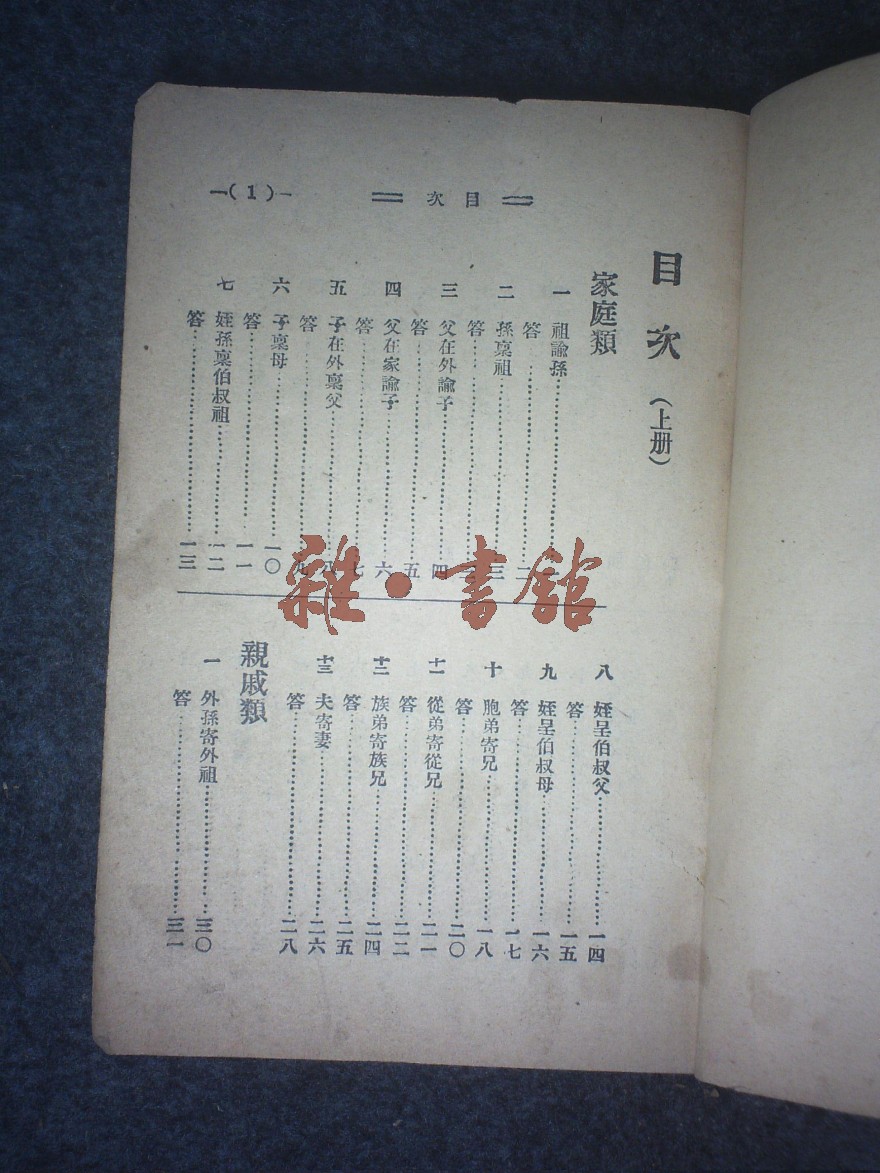 —(1)— 目次
目次(上册)
家庭類
一 祖諭孫
答……二
二 孫稟祖……三
答
三 父在外諭子……四
答……五
四 父在家諭子……六
答……七
五 子在外稟父……八
答……九
六 子稟母……一〇
答……一一
七 姪孫稟伯叔祖……一二
答……一三
八 姪呈伯叔父……一四
答……一五
九 姪呈伯叔母……一六
答……一七
十 胞弟寄兄……一八
答……二〇
十一 從弟寄從兄……二一
答……二二
十二 族弟寄族兄……二四
答……二五
十三 夫寄妻……二六
答……二八
親戚類
一 外孫寄外祖……三〇
答……三一
雜·書館